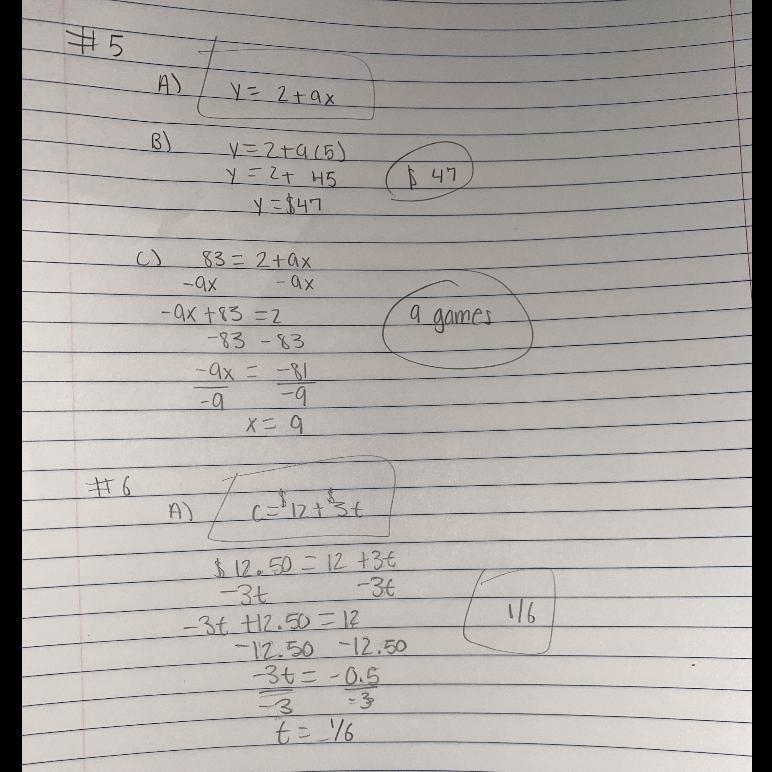 #5
A) y = 2+9x
B) y=2+9(5)
y = 2+ 45 $ 47
y=$47
C) 83 = 2+9x
-9x -9x
-9x+83 =2 9 games
-83 -83
-9x = -81
-9 -9
x= 9
#6
A) C=$12+$3t
$12.50 = 12 +3t
-3t -3t
-3t +12.50 =12 1/6
-12.50 -12.50
-3t = -0.5
-3 -3
t = 1/6